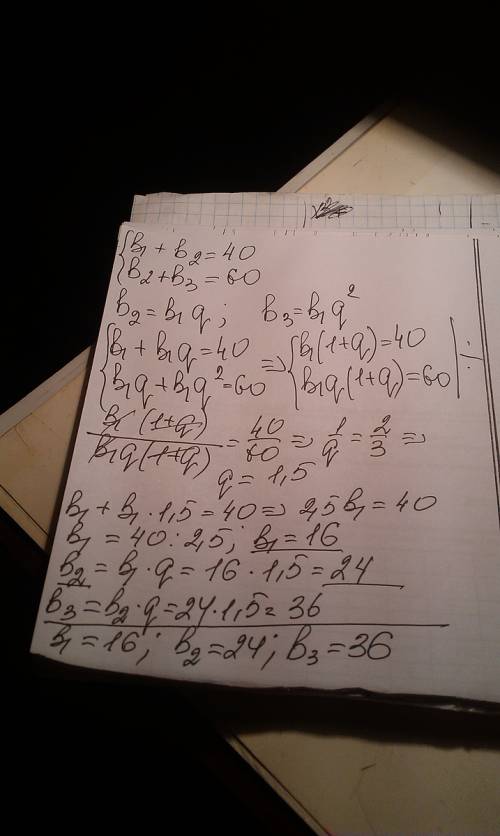 {b₁ + b₂ = 40
{b₂ + b₃ = 60
b₂ = b₁ q ; b₃ = b₁ q²
{b₁ + b₁q = 40 => {b₁(1+q) = 40 | ÷
{b₁q + b₁q² = 60 {b₁q(1+q) = 60
b₁(1+q) / b₁q(1+q) = 40/60 => 1/q = 2/3 =>
q = 1,5
b₁ + b₁ · 1,5 = 40 => 2,5 b₁ = 40
b₁ = 40 : 2,5 ; b₁ = 16
b₂ = b₁ · q = 16 · 1,5 = 24
b₃ = b₂ · q = 24 · 1,5 = 36
b₁ = 16 ; b₂ = 24 ; b₃ = 36